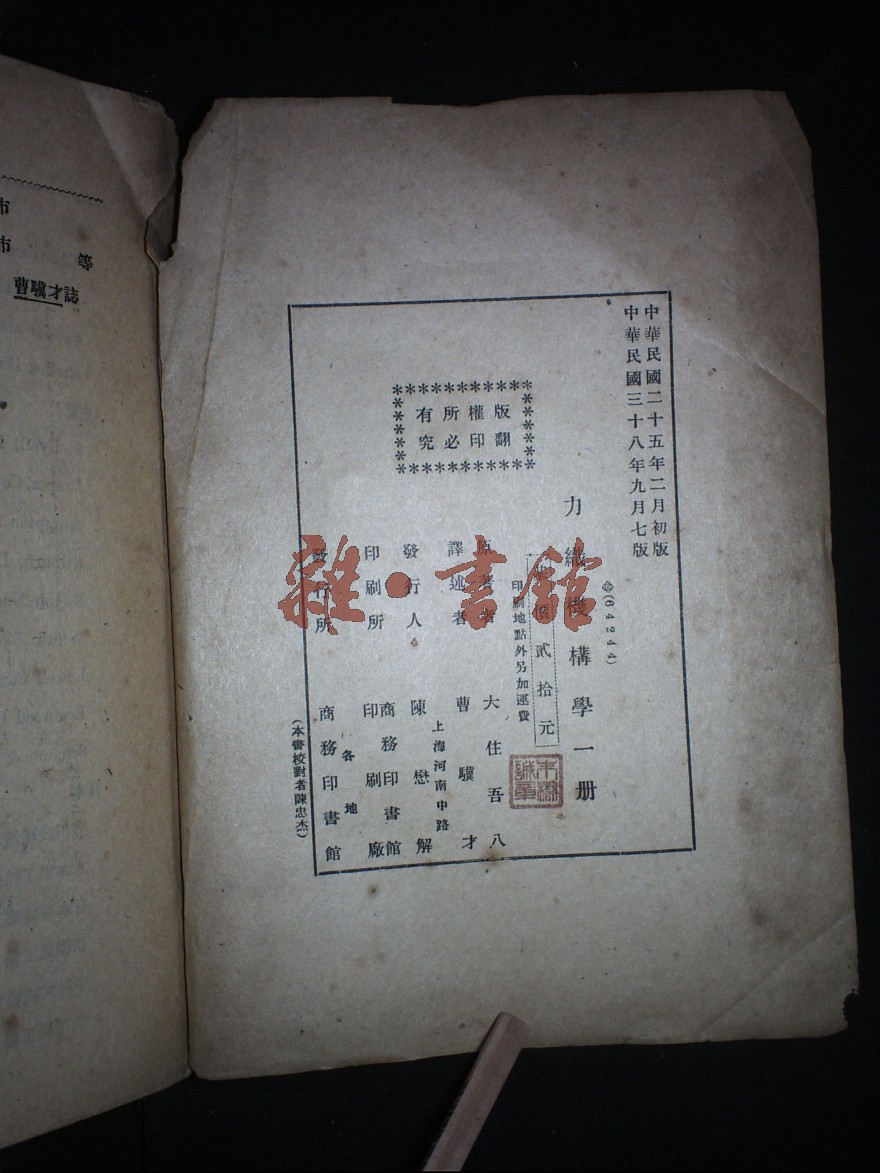 中華民國二十五年二月初版
中華民國三十八年九月七版
(64244)
力織機構學一册
價貳拾元
印刷地點外另加運費
版權所有
翻印必究
原著者 大住吾八
譯述者 曹驥才
發行人 陳懋解
上海河南中路
印刷所 商務印書館
印刷廠
發行所 各地
商務印書館
(本書校對者陳忠杰)
雜·書館
等
市
市
曹驥才誌